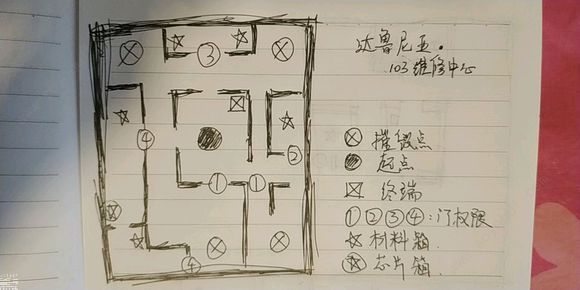 达鲁尼亚·
103维修中心
③
④
②
① ①
④
摧毁点
起点
终端
①②③④:门权限
☆材料箱
芯片箱